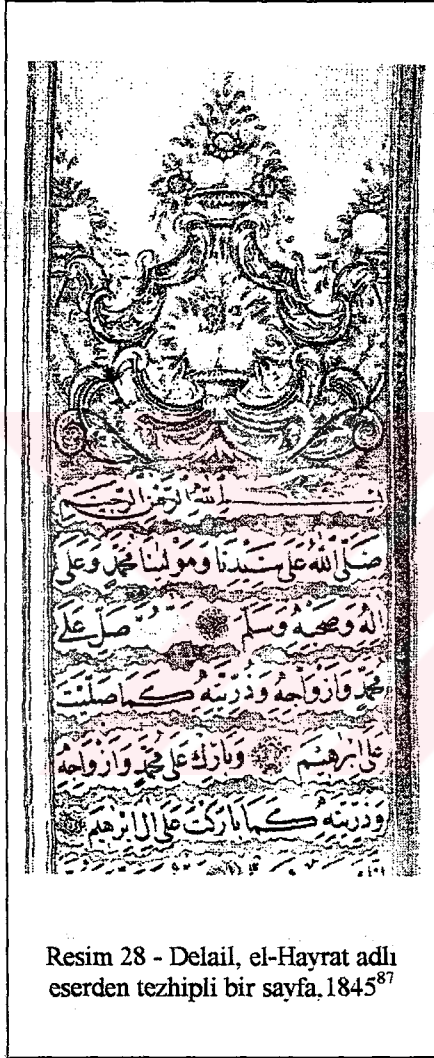 بِسْمِ اللهِ الرَّحْمٰنِ الرَّحِيمِ
صَلَّى اللهُ عَلَى سَيِّدِنَا وَمَوْلٰينَا مُحَمَّدٍ وَعَلَى
اٰلِهِ وَصَحْبِهِ وَسَلَّمَ صَلِّ عَلَى
مُحَمَّدٍ وَاَزْوَاجِهِ وَذُرِّيَّتِهِ كَمَا صَلَّيْتَ
عَلَى اِبْرٰهِيمَ وَبَارِكْ عَلَى مُحَمَّدٍ وَاَزْوَاجِهِ
وَذُرِّيَّتِهِ كَمَا بَارَكْتَ عَلَى اٰلِ اِبْرٰهِيمَ
Resim 28 - Delail, el-Hayrat adlı
eserden tezhipli bir sayfa, 1845⁸⁷